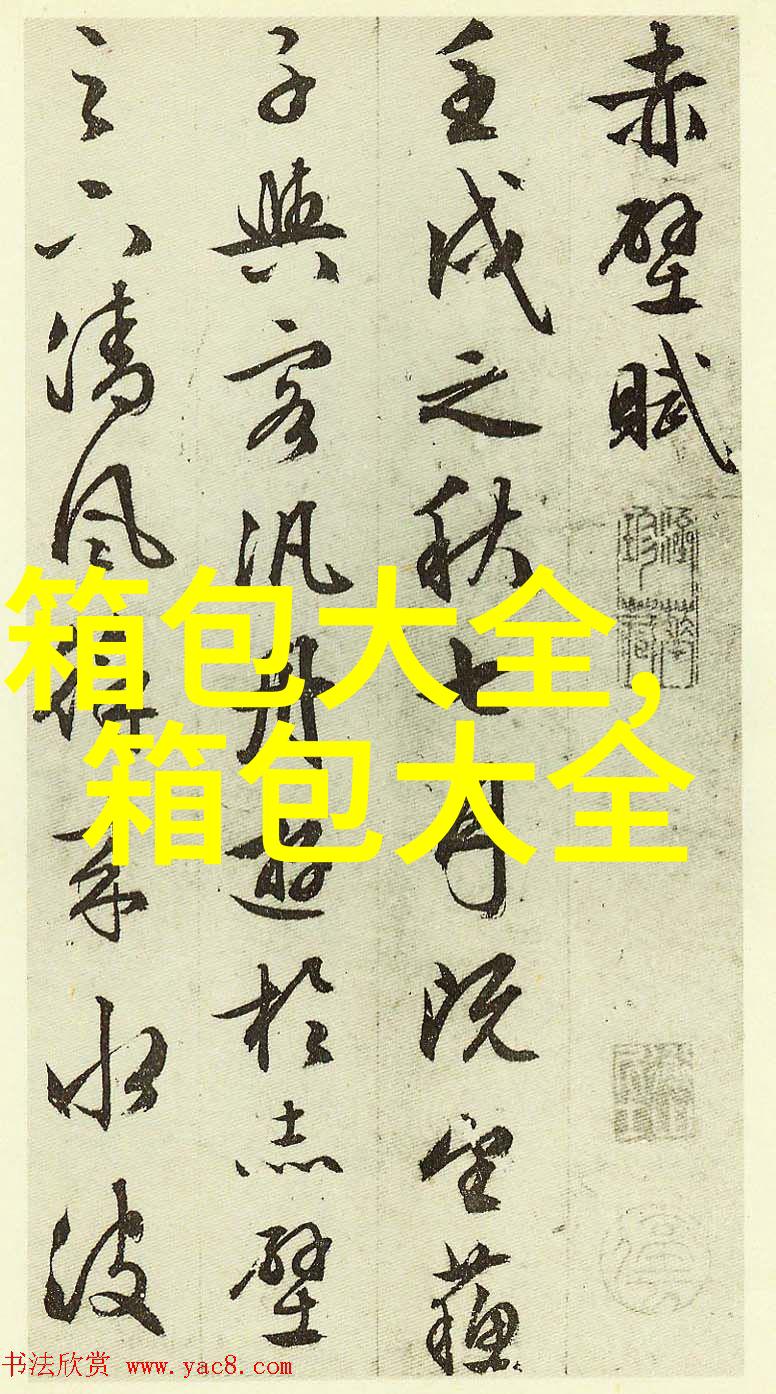 赤壁賦
壬戌之秋七月既望蘇
子與客汎舟遊於赤壁
之下清風徐來水波
箱包大全,
箱包大全
书法欣赏 www.yac8.com